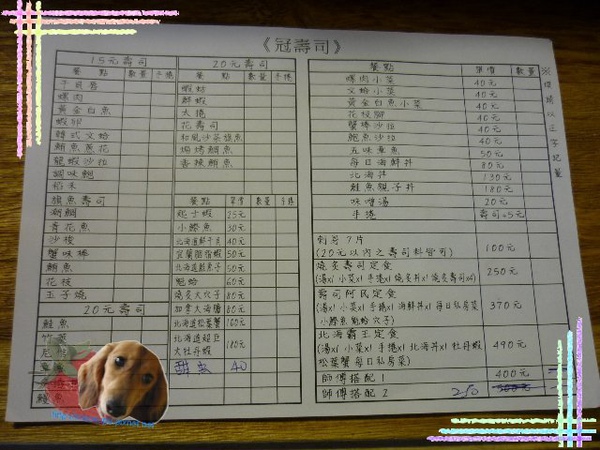 《冠壽司》
15元壽司
餐點 數量 手捲
干貝唇
螺肉
黃金白魚
蝦卵
韓式文蛤
鮪魚蔥花
龍蝦沙拉
調味鯛
稻禾
旗魚壽司
潮鯛
青花魚
沙梭
蟹味棒
鮪魚
花枝
玉子燒
20元壽司
鮭魚
20元壽司
餐點 數量 手捲
蝦材
鮮蝦
太捲
花壽司
和風沙茶旗魚
焗烤鯛魚
香辣鮪魚
餐點 單價 數量 手捲
起士蝦 25元
小鰹魚 30元
北海道鮮干貝 40元
宜蘭胭脂蝦 50元
北海道鮭魚子 50元
鮑蛤 60元
燒炙大穴子 80元
加拿大海膽 80元
北海道松葉蟹 100元
北海道超巨大牡丹蝦 180元
醉蝦 40
餐點 單價 數量
螺肉小菜 40元
文蛤小菜 40元
黃金白魚小菜 40元
花枝腳 40元
蟹棒沙拉 40元
鮑魚沙拉 40元
五味章魚 50元
每日海鮮丼 80元
北海丼 130元
鮭魚親子丼 180元
味噌湯 20元
手捲 壽司+5元
刺身7片
(20元以內之壽司料皆可) 100元
燒炙壽司定食
(湯x1 小菜x1 手捲x1 燒炙丼x1 燒炙壽司x4) 250元
壽司阿民定食
(湯x1 小菜x1 手捲x1 海鮮丼x1 每日私房菜
小鰹魚 鮑蛤 穴子) 370元
北海霸王定食
(湯x1 小菜x1 手捲x1 北海丼x1 牡丹蝦
松葉蟹 每日私房菜) 490元
師傅搭配1 400元
師傅搭配2 250 500元